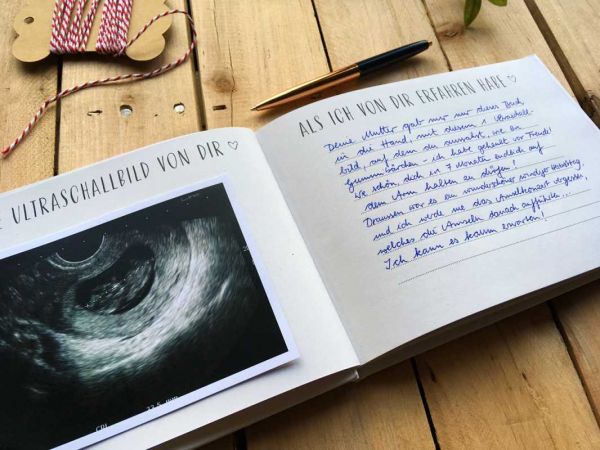 ULTRASCHALLBILD VON DIR
CRL 22.5 mm
ALS ICH VON DIR ERFAHREN HABE
Deine Mutter gab mir nur dieses Buch
in die Hand, mit diesem 1. Ultraschall-
bild, auf dem du aussahst, wie ein
Gummibärchen - ich habe geheult vor Freude!
Wie schön, dich in 7 Monaten endlich auf
dem Arm halten zu dürfen!
Draussen war es ein wunderschöner sonniger
und ich werde nie das Amselkonzert vergessen,
welches die Amseln danach aufführten...
Ich kann es kaum erwarten!